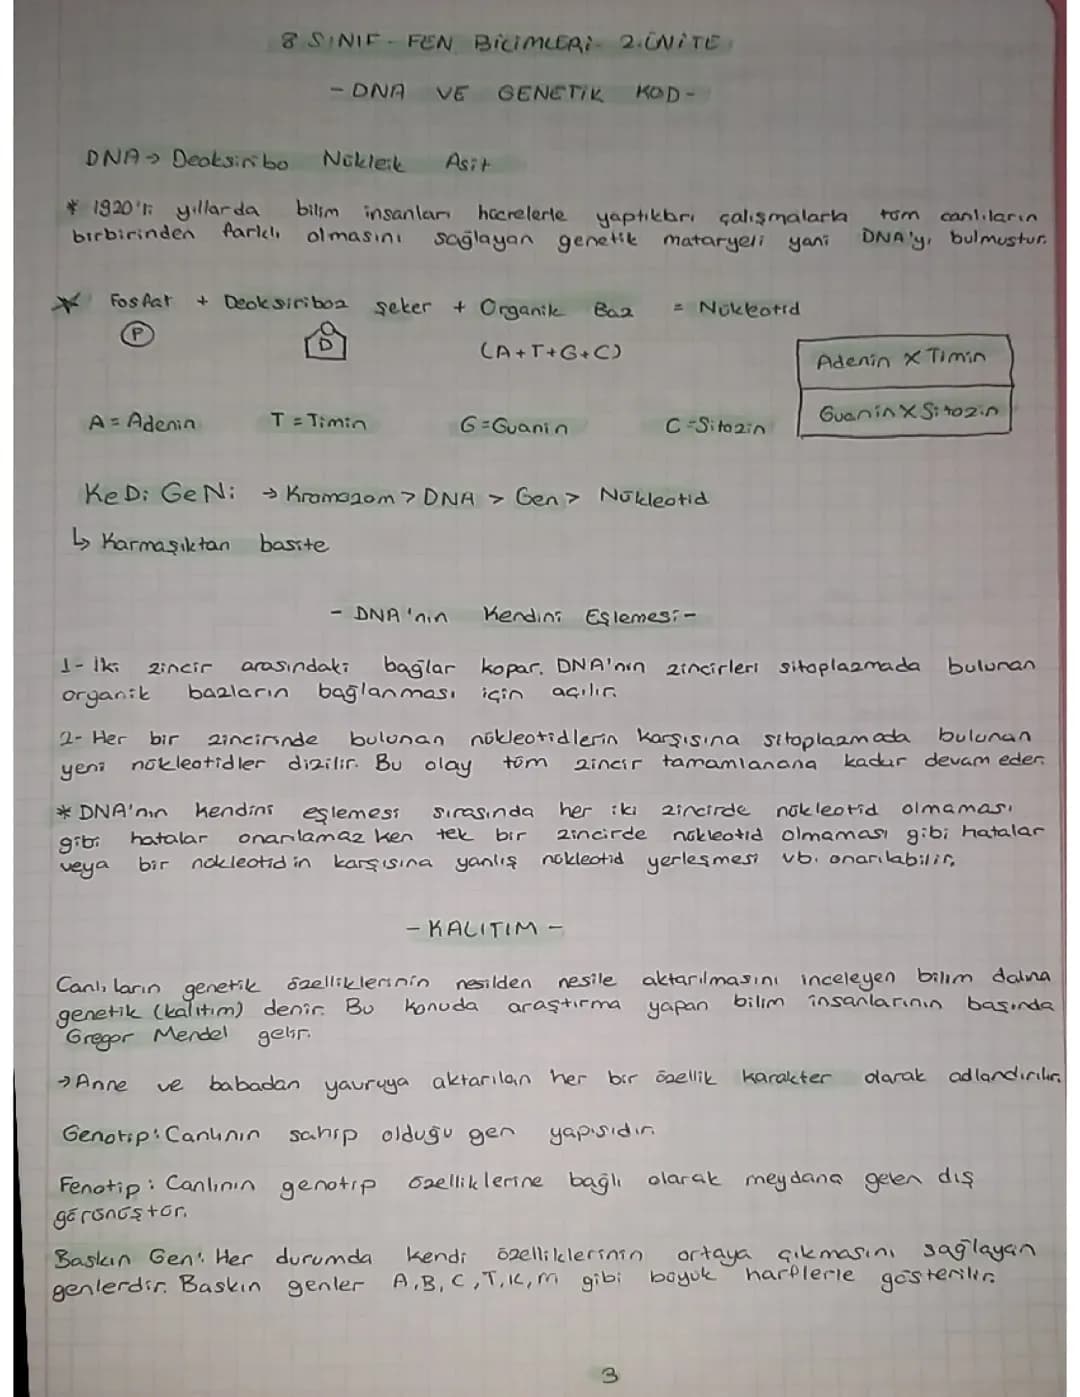 8.SINIF - FEN BİLİMLERİ - 2.ÜNİTE
- DNA VE GENETİK KOD -
DNA → Deoksiribo Nükleik Asit
* 1920'li yıllarda bilim insanları hücrelerle yaptıkları çalışmalarla tüm canlıların
birbirinden farklı olmasını sağlayan genetik mataryeli yani DNA'yı bulmuştur.
* Fosfat + Deoksiriboz şeker + Organik Baz = Nükleotid
P D (A+T+G+C)
Adenin X Timin
Guanin X Sitozin
A = Adenin T = Timin G = Guanin C = Sitozin
KeDi GeNi → Kromozom > DNA > Gen > Nükleotid
↳ Karmaşıktan basite
- DNA'nın Kendini Eşlemesi -
1- İki zincir arasındaki bağlar kopar. DNA'nın zincirleri sitoplazmada bulunan
organik bazların bağlanması için açılır.
2- Her bir zincirinde bulunan nükleotidlerin karşısına sitoplazmada bulunan
yeni nükleotidler dizilir. Bu olay tüm zincir tamamlanana kadar devam eder.
* DNA'nın kendini eşlemesi sırasında her iki zincirde nükleotid olmaması
gibi hatalar onarılamaz ken tek bir zincirde nükleotid olmaması gibi hatalar
veya bir nükleotidin karşısına yanlış nükleotid yerleşmesi vb. onarılabilir.
- KALITIM -
Canlıların genetik özelliklerinin nesilden nesile aktarılmasını inceleyen bilim dalına
genetik (kalıtım) denir. Bu konuda araştırma yapan bilim insanlarının başında
Gregor Mendel gelir.
→ Anne ve babadan yavruya aktarılan her bir özellik karakter olarak adlandırılır.
Genotip: Canlının sahip olduğu gen yapısıdır.
Fenotip: Canlının genotip özelliklerine bağlı olarak meydana gelen dış
görünüştür.
Baskın Gen: Her durumda kendi özelliklerinin ortaya çıkmasını sağlayan
genlerdir. Baskın genler A, B, C, T, K, M gibi büyük harflerle gösterilir.
3